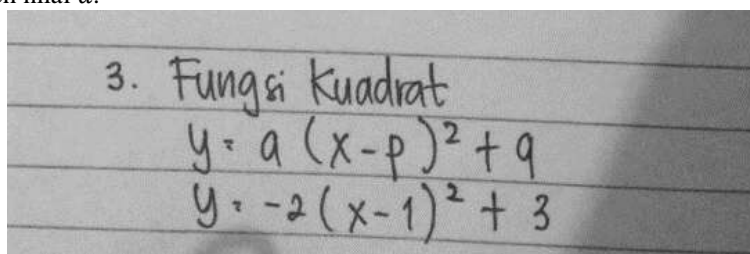 3. Fungsi Kuadrat
y = a (x-p)² + q
y = -2 (x-1)² + 3